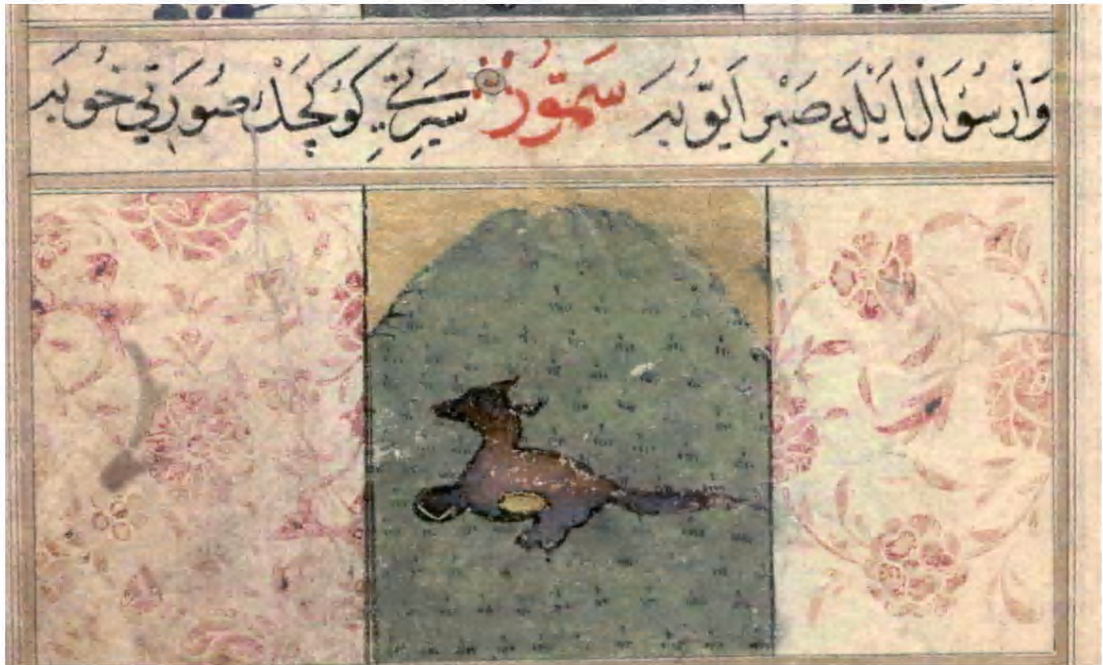 وَارْ سُؤَالْ اَيْلَه صَبْرِ اَيُّوبَه سَمّوُرْ سِيرَتِي كُوكچَكْ صُورَتِي خُوبَه